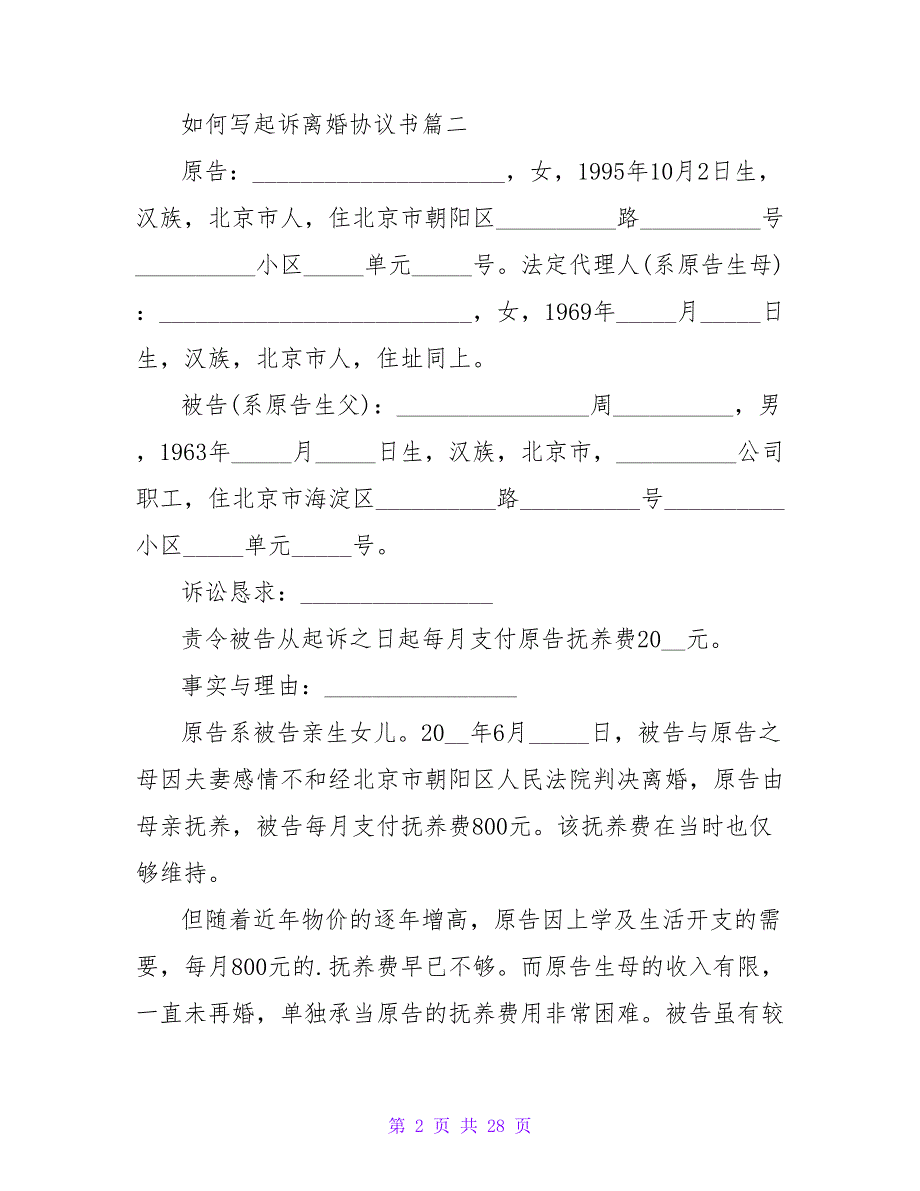 如何写起诉离婚协议书篇二
原告：_____________________，女，1995年10月2日生，
汉族，北京市人，住北京市朝阳区__________路__________号
__________小区_____单元_____号。法定代理人(系原告生母)
：__________________________，女，1969年_____月_____日
生，汉族，北京市人，住址同上。
被告(系原告生父)：________________周__________，男
，1963年_____月_____日生，汉族，北京市，__________公司
职工，住北京市海淀区__________路__________号__________
小区_____单元_____号。
诉讼恳求：________________
责令被告从起诉之日起每月支付原告抚养费20__元。
事实与理由：________________
原告系被告亲生女儿。20__年6月_____日，被告与原告之
母因夫妻感情不和经北京市朝阳区人民法院判决离婚，原告由
母亲抚养，被告每月支付抚养费800元。该抚养费在当时也仅
够维持。
但随着近年物价的逐年增高，原告因上学及生活开支的需
要，每月800元的.抚养费早已不够。而原告生母的收入有限，
一直未再婚，单独承当原告的抚养费用非常困难。被告虽有较
第 2 页 共 28 页